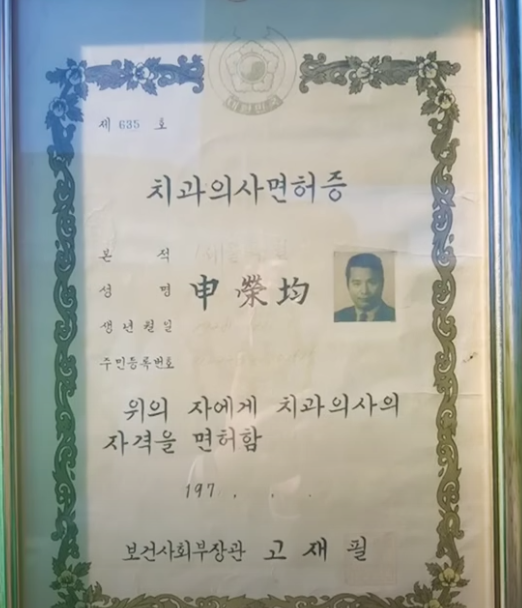 대한민국
제 635 호
치과의사면허증
본 적
성 명 申榮均
생년월일
주민등록번호
위의 자에게 치과의사의
자격을 면허함
197 . . .
보건사회부장관 고재필